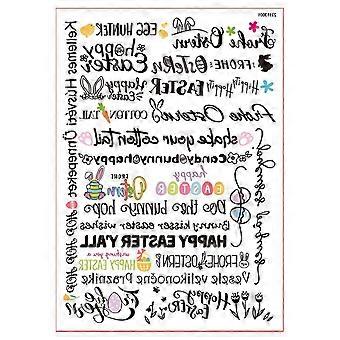 EGG HUNTER
Frohe Ostern
Happy Easter
FROHE Ostern
Happy Easter
EASTER
Hippity Hoppity
COTTON TAIL
Frohe Ostern
shake your cotton tail
Candy bunny happy
happy EASTER
FROHE Ostern
Do the bunny hop
Bunny kisses easter wishes
HAPPY EASTER Y'ALL
wishing you a HAPPY EASTER
FROHE OSTERN
Veselé velikonočne Praznike
Happy Easter
Kellemes Húsvéti Ünnepeket
HOP HOP HOP